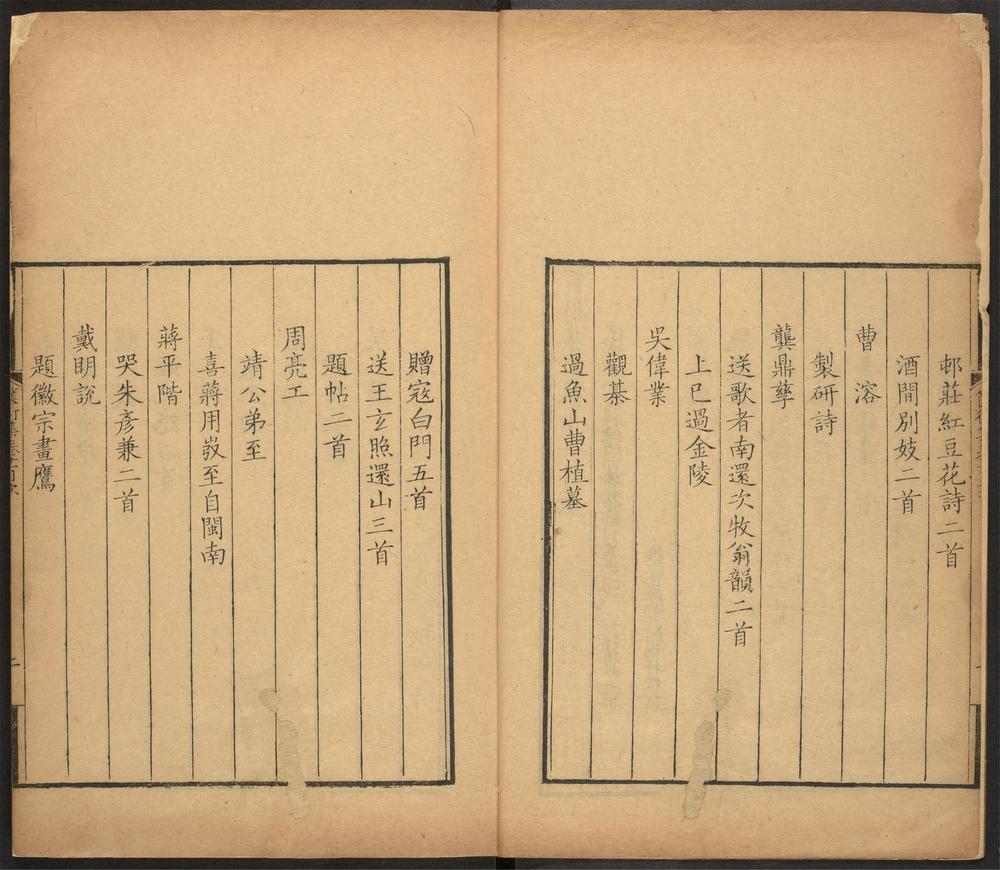 邨莊紅豆花詩二首
酒間別妓二首
曹溶
製研詩
龔鼎孳
送歌者南還次牧翁韻二首
上巳過金陵
吳偉業
觀棊
過魚山曹植墓
贈寇白門五首
送王玄照還山三首
題帖二首
周亮工
靖公弟至
喜蔣用弢至自閩南
蔣平階
哭朱彥兼二首
戴明說
題徽宗畫鷹